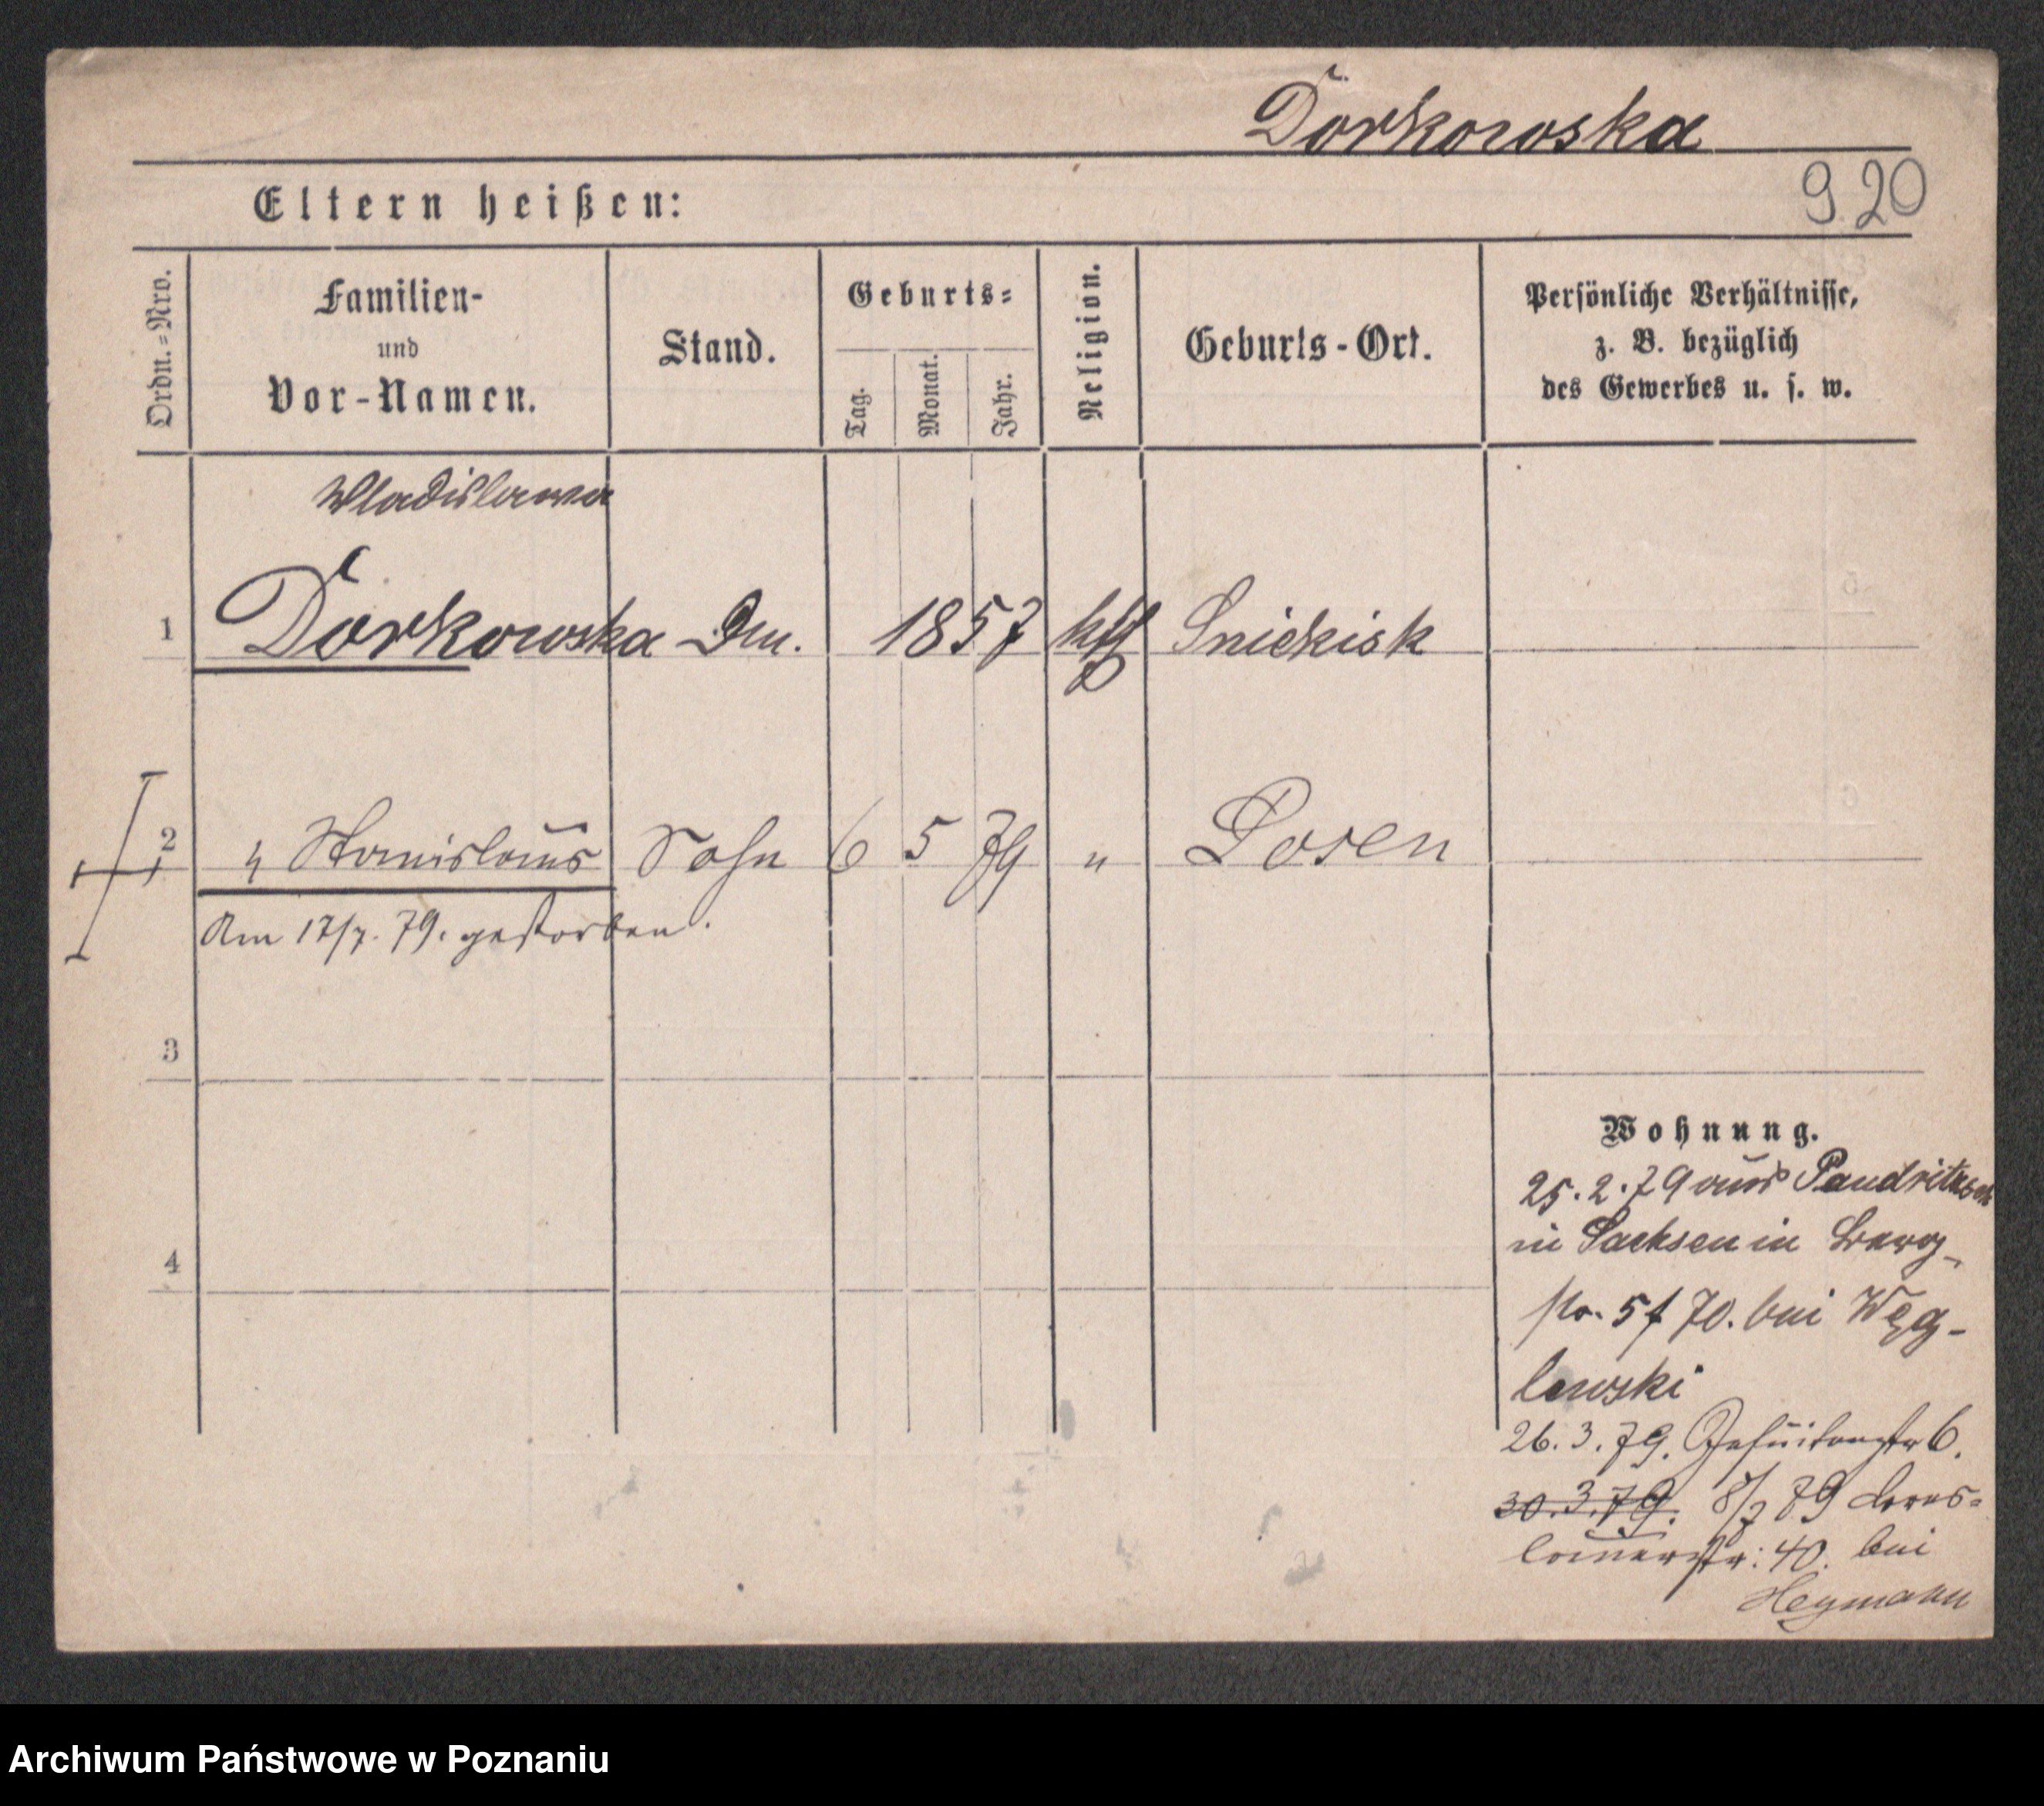 Dorkowska
920
Eltern heißen:
Ordn.-Nro.
Familien-
und
Vor-Namen.
Stand.
Geburts-
Tag.
Monat.
Jahr.
Religion.
Geburts-Ort.
Persönliche Verhältnisse,
z. B. bezüglich
des Gewerbes u. s. w.
Wladislawa
1 Dorkowska 1857 kth Sniekisk
2 " Stanislaus Sohn 6 5 79 " Posen
Am 17/7. 79. gestorben.
3
4
Wohnung.
25.2.79 aus
in Sachsen in
str. 57 70. bei Węg-
lewski
26.3.79. Jesuitenstr 6.
30.3.79. 8/7 79 Bres-
lauerstr: 40. bei
Heymann
Archiwum Państwowe w Poznaniu